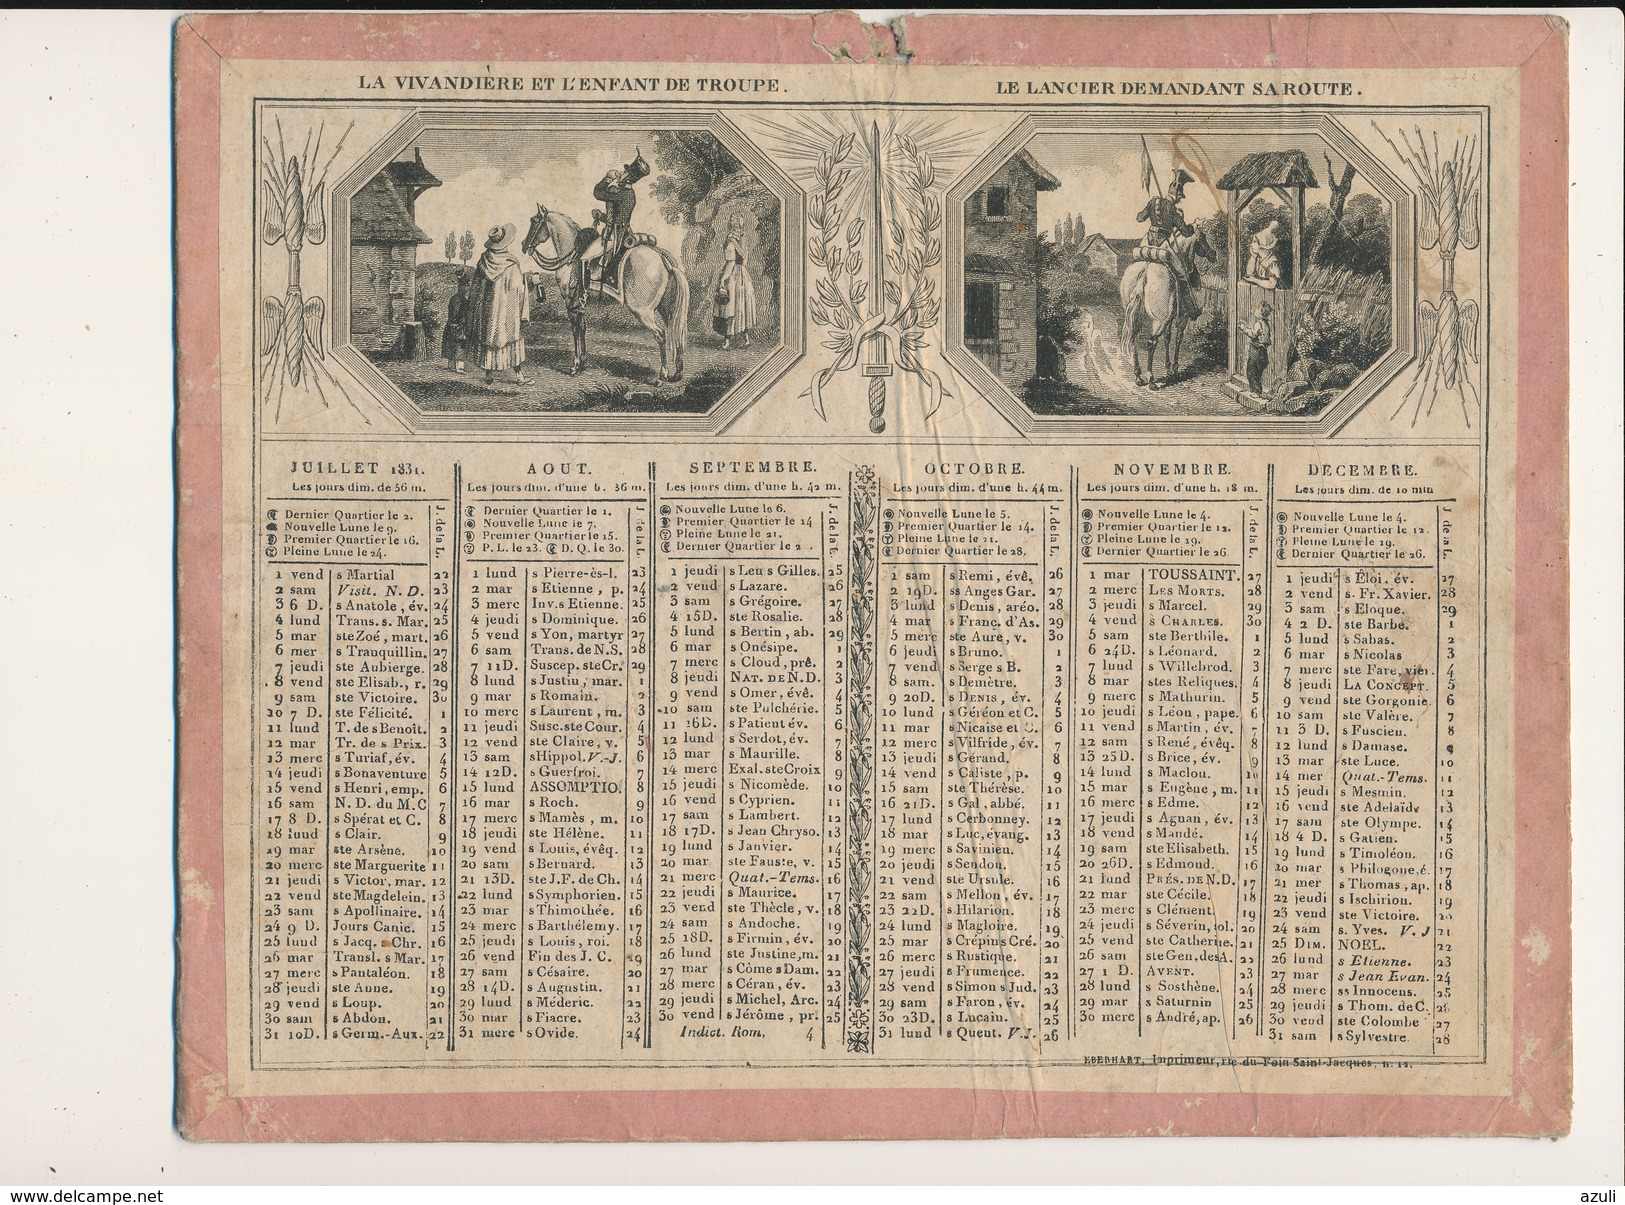 LA VIVANDIÈRE ET L'ENFANT DE TROUPE.
LE LANCIER DEMANDANT SA ROUTE.
JUILLET 1831.
Les jours dim. de 56 m.
Dernier Quartier le 2.
Nouvelle Lune le 9.
Premier Quartier le 16.
Pleine Lune le 24.
J. de la L.
1 vend s Martial 22
2 sam Visit. N. D. 23
3 6 D. s Anatole, év. 24
4 lund Trans. s. Mar. 25
5 mar ste Zoé, mart. 26
6 mer s Tranquillin. 27
7 jeudi ste Aubierge. 28
8 vend ste Elisab., r. 29
9 sam ste Victoire. 30
10 7 D. ste Félicité. 1
11 lund T. de s Benoît. 2
12 mar Tr. de s Prix. 3
13 merc s Turiaf, év. 4
14 jeudi s Bonaventure 5
15 vend s Henri, emp. 6
16 sam N. D. du M.C 7
17 8 D. s Spérat et C. 8
18 lund s Clair. 9
19 mar ste Arsène. 10
20 merc ste Marguerite 11
21 jeudi s Victor, mar. 12
22 vend ste Magdelein. 13
23 sam s Apollinaire. 14
24 9 D. Jours Canic. 15
25 lund s Jacq. s Chr. 16
26 mar Transl. s Mar. 17
27 merc s Pantaléon. 18
28 jeudi ste Anne. 19
29 vend s Loup. 20
30 sam s Abdon. 21
31 10D. s Germ.-Aux. 22
AOUT.
Les jours dim. d'une h. 36 m.
Dernier Quartier le 1.
Nouvelle Lune le 7.
Premier Quartier le 15.
P. L. le 23. D. Q. le 30.
J. de la L.
1 lund s Pierre-ès-l. 23
2 mar s Etienne, p. 24
3 merc Inv. s Etienne. 25
4 jeudi s Dominique. 26
5 vend s Yon, martyr 27
6 sam Trans. de N.S. 28
7 11D. Suscep. ste Cr. 29
8 lund s Justin, mar. 1
9 mar s Romain. 2
10 merc s Laurent, m. 3
11 jeudi Susc. ste Cour. 4
12 vend ste Claire, v. 5
13 sam s Hippol. V.-J. 6
14 12D. s Guerfroi. 7
15 lund ASSOMPTIO. 8
16 mar s Roch. 9
17 merc s Mamès, m. 10
18 jeudi ste Hélène. 11
19 vend s Louis, évêq. 12
20 sam s Bernard. 13
21 13D. ste J.F. de Ch. 14
22 lund s Symphorien. 15
23 mar s Thimothée. 16
24 merc s Barthélemy. 17
25 jeudi s Louis, roi. 18
26 vend Fin des J. C. 19
27 sam s Césaire. 20
28 14D. s Augustin. 21
29 lund s Médéric. 22
30 mar s Fiacre. 23
31 merc s Ovide. 24
SEPTEMBRE.
Les jours dim. d'une h. 42 m.
Nouvelle Lune le 6.
Premier Quartier le 14
Pleine Lune le 21.
Dernier Quartier le 2 .
J. de la L.
1 jeudi s Leu s Gilles. 25
2 vend s Lazare. 26
3 sam s Grégoire. 27
4 15D. ste Rosalie. 28
5 lund s Bertin, ab. 29
6 mar s Onésipe. 1
7 merc s Cloud, prê. 2
8 jeudi NAT. DE N.D. 3
9 vend s Omer, évê. 4
10 sam ste Pulchérie. 5
11 16D. s Patient év. 6
12 lund s Serdot, év. 7
13 mar s Maurille. 8
14 merc Exal. ste Croix 9
15 jeudi s Nicomède. 10
16 vend s Cyprien. 11
17 sam s Lambert. 12
18 17D. s Jean Chryso. 13
19 lund s Janvier. 14
20 mar ste Fauste, v. 15
21 merc Quat.-Tems. 16
22 jeudi s Maurice. 17
23 vend ste Thècle, v. 18
24 sam s Andoche. 19
25 18D. s Firmin, év. 20
26 lund ste Justine, m. 21
27 mar s Côme s Dam. 22
28 merc s Céran, év. 23
29 jeudi s Michel, Arc. 24
30 vend s Jérôme, pr. 25
Indict. Rom. 4
OCTOBRE.
Les jours dim. d'une h. 44 m.
Nouvelle Lune le 5.
Premier Quartier le 14.
Pleine Lune le 21.
Dernier Quartier le 28.
J. de la L.
1 sam s Remi, évê. 26
2 19D. ss Anges Gar. 27
3 lund s Denis, aréo. 28
4 mar s Franç. d'As. 29
5 merc ste Aure, v. 30
6 jeudi s Bruno. 1
7 vend s Serge s B. 2
8 sam. s Demètre. 3
9 20D. s DENIS, év. 4
10 lund s Géréon et C. 5
11 mar s Nicaise et C. 6
12 merc s Vilfride, év. 7
13 jeudi s Gérand. 8
14 vend s Caliste, p. 9
15 sam ste Thérèse. 10
16 21D. s Gal, abbé. 11
17 lund s Cerbonney. 12
18 mar s Luc, évang. 13
19 merc s Savinien. 14
20 jeudi s Sendou. 15
21 vend ste Ursule. 16
22 sam s Mellon, év. 17
23 22D. s Hilarion. 18
24 lund s Magloire. 19
25 mar s Crépin s Cré. 20
26 merc s Rustique. 21
27 jeudi s Frumence. 22
28 vend s Simon s Jud. 23
29 sam s Faron, év. 24
30 23D. s Lucain. 25
31 lund s Quent. V.J. 26
NOVEMBRE.
Les jours dim. d'une h. 18 m.
Nouvelle Lune le 4.
Premier Quartier le 12.
Pleine Lune le 19.
Dernier Quartier le 26
J. de la L.
1 mar TOUSSAINT. 27
2 merc LES MORTS. 28
3 jeudi s Marcel. 29
4 vend s CHARLES. 30
5 sam ste Berthile. 1
6 24D. s Léonard. 2
7 lund s Willebrod. 3
8 mar stes Reliques. 4
9 merc s Mathurin. 5
10 jeudi s Léon, pape. 6
11 vend s Martin, év. 7
12 sam s René, évêq. 8
13 25D. s Brice, év. 9
14 lund s Maclou. 10
15 mar s Eugène, m. 11
16 merc s Edme. 12
17 jeudi s Agnan, év. 13
18 vend s Mandé. 14
19 sam ste Elisabeth. 15
20 26D. s Edmond. 16
21 lund PRÉS. DE N.D. 17
22 mar ste Cécile. 18
23 merc s Clément. 19
24 jeudi s Séverin, sol. 20
25 vend ste Catherine. 21
26 sam ste Gen. des A. 22
27 1 D. AVENT. 23
28 lund s Sosthène. 24
29 mar s Saturnin 25
30 merc s André, ap. 26
DÉCEMBRE.
Les jours dim. de 10 min
Nouvelle Lune le 4.
Premier Quartier le 12.
Pleine Lune le 19.
Dernier Quartier le 26.
J. de la L.
1 jeudi s Éloi. év. 27
2 vend s. Fr. Xavier. 28
3 sam s Eloque. 29
4 2 D. ste Barbe. 1
5 lund s Sabas. 2
6 mar s Nicolas 3
7 merc ste Fare, vier. 4
8 jeudi LA CONCEPT. 5
9 vend ste Gorgonie. 6
10 sam ste Valère. 7
11 3 D. s Fuscien. 8
12 lund s Damase. 9
13 mar ste Luce. 10
14 mer Quat.-Tems. 11
15 jeudi s Mesmin. 12
16 vend ste Adelaïde 13
17 sam ste Olympe. 14
18 4 D. s Gatien. 15
19 lund s Timoléon. 16
20 mar s Philogone, é. 17
21 mer s Thomas, ap. 18
22 jeudi s Ischirion. 19
23 vend ste Victoire. 20
24 sam s. Yves. V. J 21
25 DIM. NOEL. 22
26 lund s Etienne. 23
27 mar s Jean Evan. 24
28 merc ss Innocens. 25
29 jeudi s Thom. de C. 26
30 vend ste Colombe 27
31 sam s Sylvestre. 28
EBERHART, Imprimeur, rue du Foin Saint-Jacques, n. 12.
www.delcampe.net
azuli